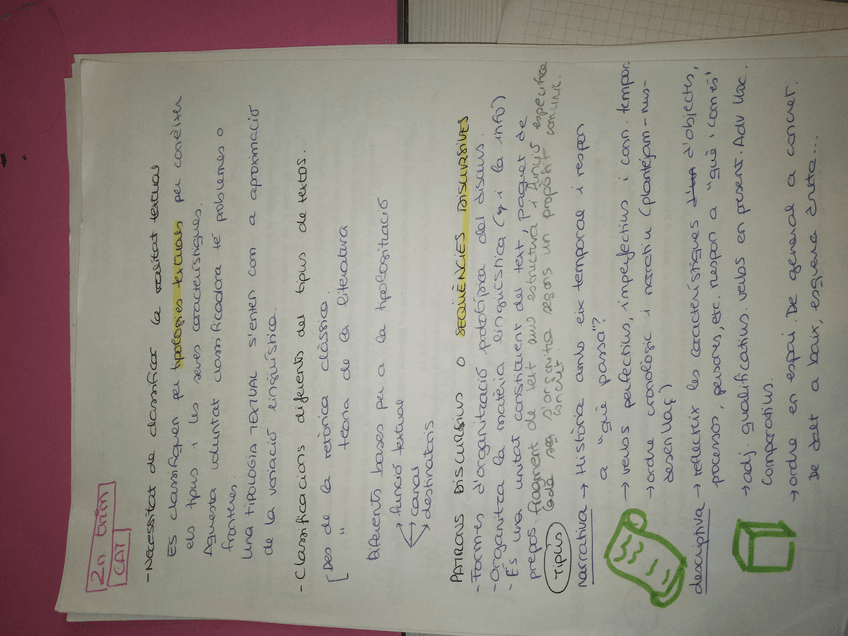 2n trim
CAT
- Necessitat de classificar la varietat textual
Es classifiquen per tipologies textuals per conèixer
els tipus i les seves característiques.
Aquesta voluntat classificadora té problemes o
fronteres.
Una TIPOLOGIA TEXTUAL s'entén com a aproximació
de la variació lingüística.
- Classificacions diferents dels tipus de textos.
[Des de la retòrica clàssica
" teoria de la literatura
Diferents bases per a la tipologització
→ funció textual
→ canal
→ destinataris
PATRONS DISCURSIUS O SEQÜÈNCIES DISCURSIVES
- Formes d'organització prototípica del discurs.
- Organitza la matèria lingüística (i la info)
- És una unitat constituent del text, paquet de
propos. fragment de text amb estructura i funció específica
s'organitza segons un propòsit comunic.
concret
Tipus
narrativa → Història amb eix temporal i respon
a "què passa"?
→ verbs perfectius, imperfectius i conn. tempor.
→ ordre cronològic i narratiu (plantejam-nus-
desenllaç)
descriptiva → reflectir les característiques d'objectes,
processos, persones, etc. respon a "què i com és"
→ adj. qualificatius. verbs en present. Adv lloc.
Comparatius.
→ ordre en espai. De general a concret.
De dalt a baix, esquerra dreta...